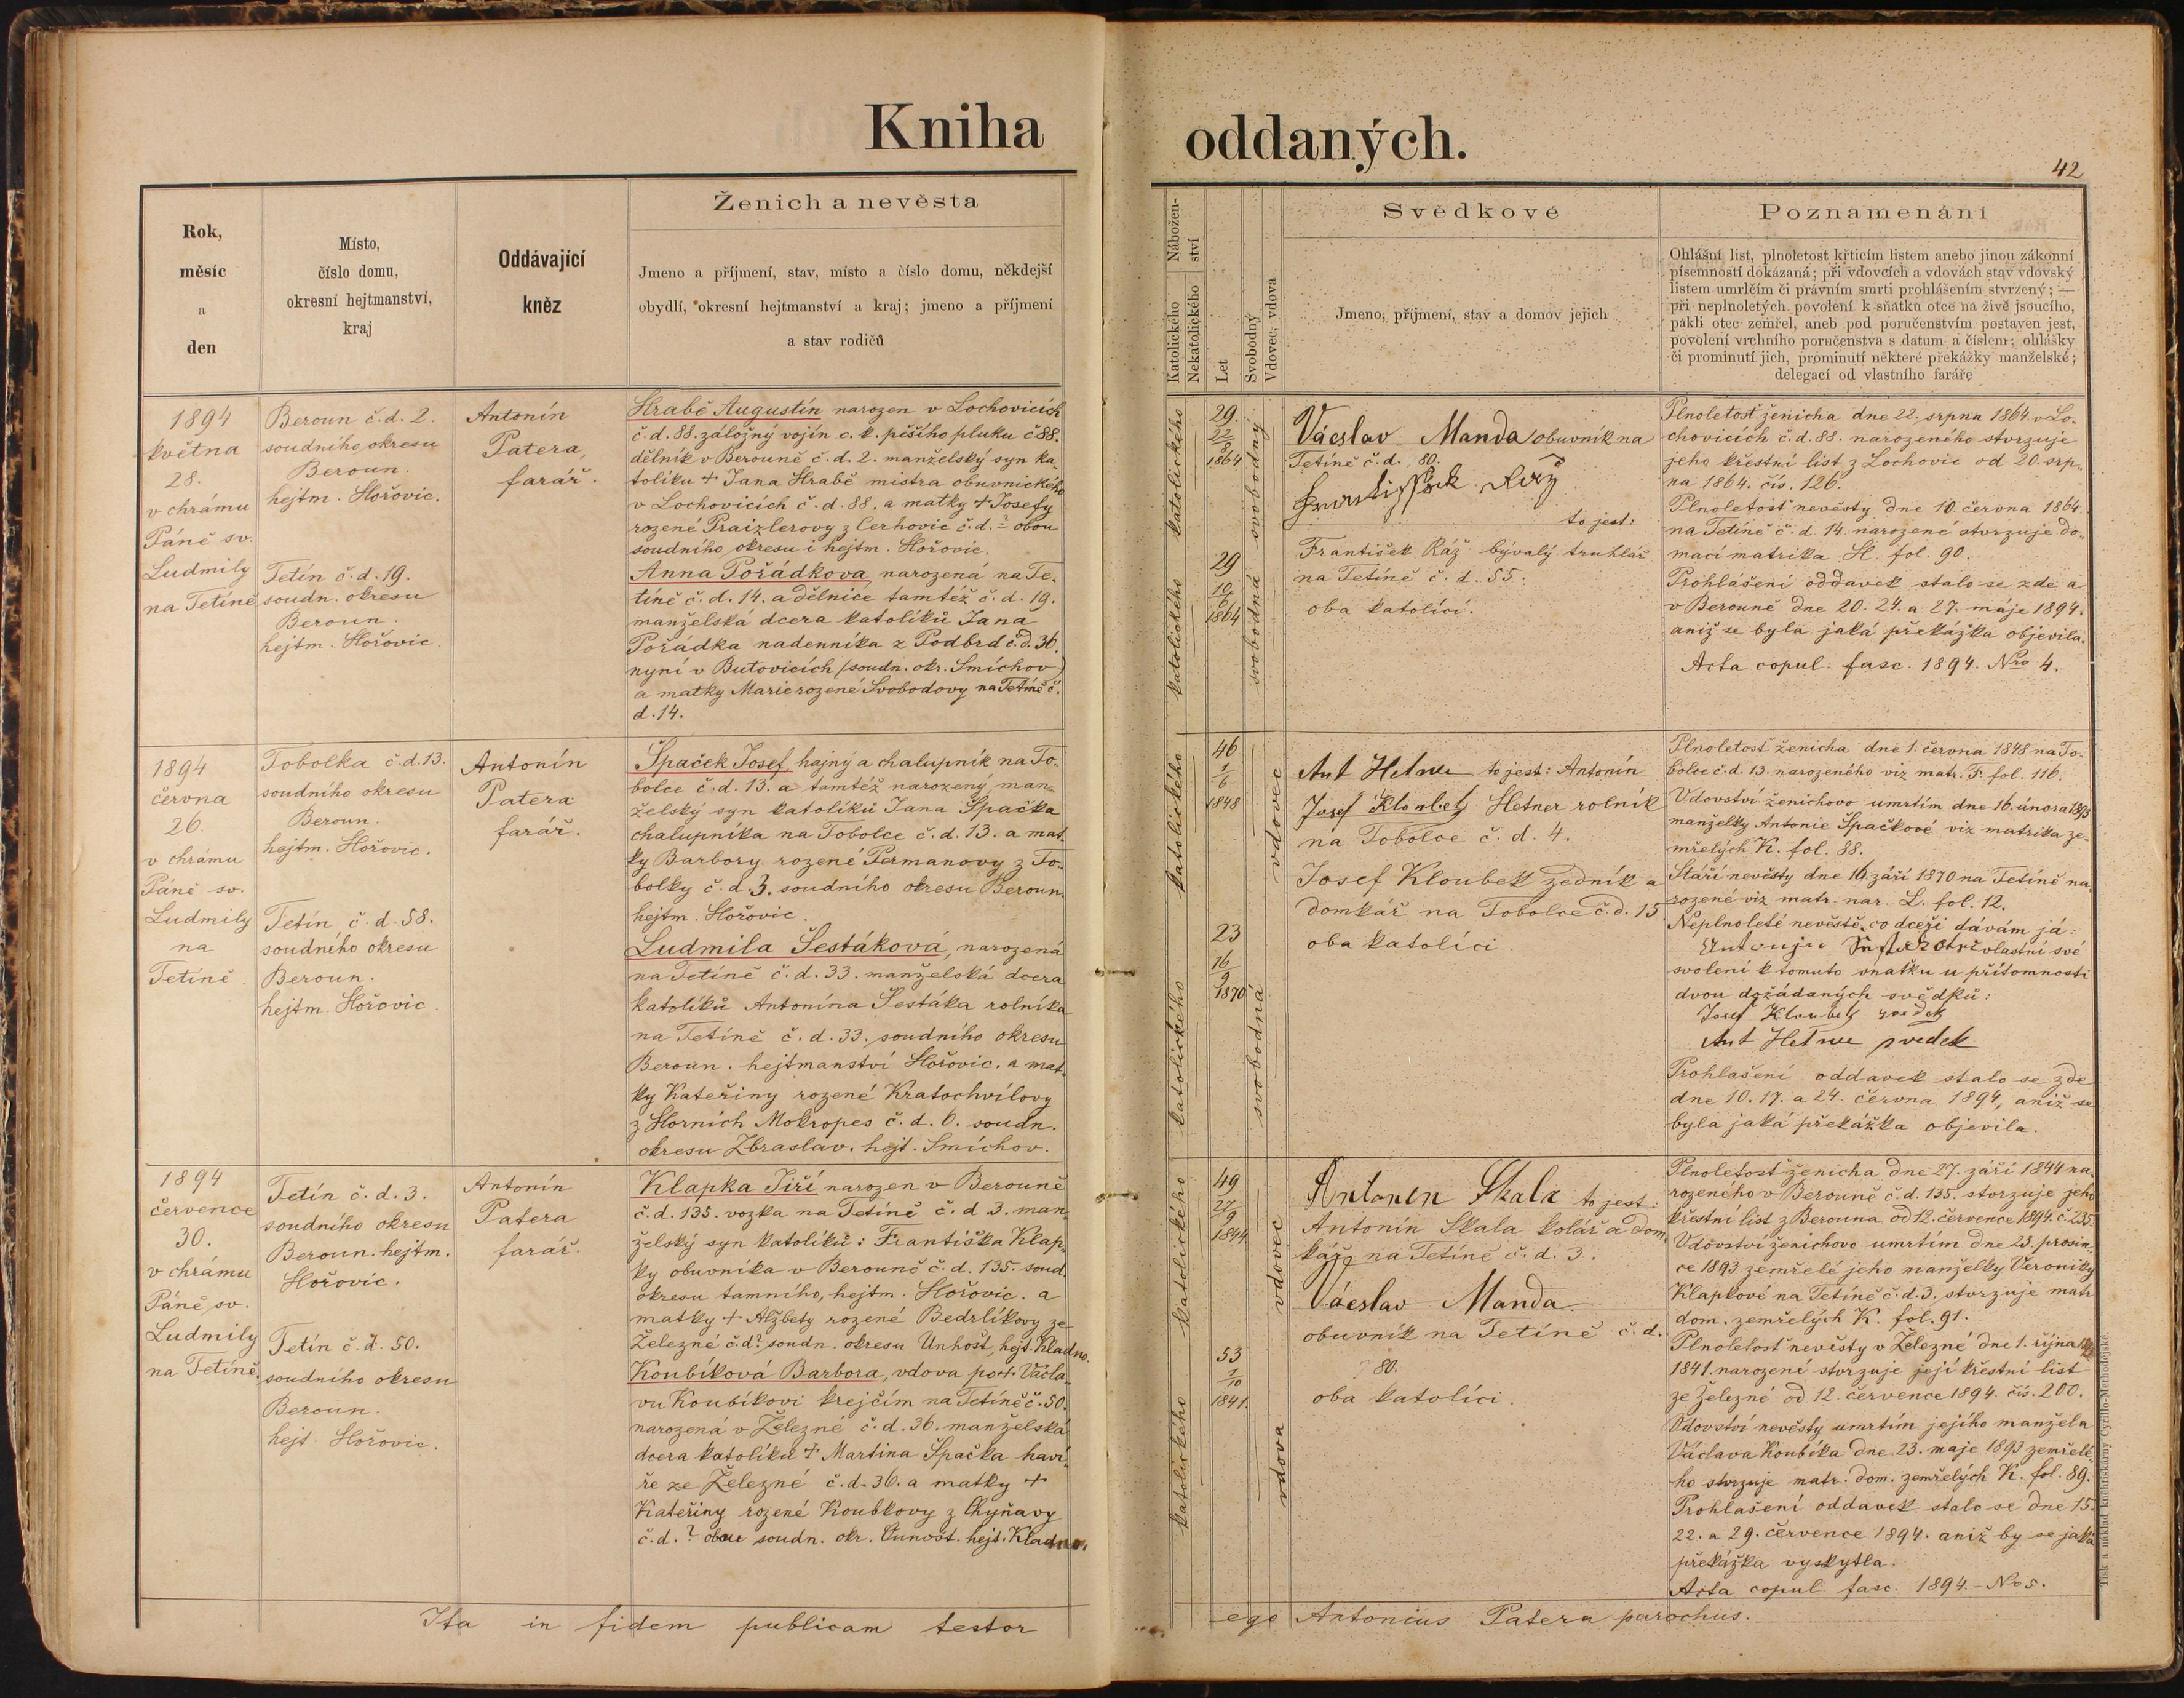 Kniha oddaných.
42
Rok,
měsíc
a
den
Místo,
číslo domu,
okresní hejtmanství,
kraj
Oddávající
kněz
Ženich a nevěsta
Jmeno a příjmení, stav, místo a číslo domu, někdejší
obydlí, okresní hejtmanství a kraj; jmeno a příjmení
a stav rodičů
Nábožen-
ství
Katolického
Nekatolického
Let
Svobodný
Vdovec, vdova
Svědkové
Jmeno, příjmení, stav a domov jejich
Poznamenání
Ohlášní list, plnoletost křticím listem anebo jinou zákonní
písemností dokázaná; při vdovcích a vdovách stav vdovský
listem umrlčím či právním smrti prohlášením stvrzený; —
při neplnoletých povolení k sňatku otce na živě jsoucího,
pakli otec zemřel, aneb pod poručenstvím postaven jest,
povolení vrchního poručenstva s datum a číslem; ohlášky
či prominutí jich, prominutí některé překážky manželské;
delegací od vlastního faráře
1894
května
28.
v chrámu
Páně sv.
Ludmily
na Tetíně
Beroun č.d. 2.
soudního okresu
Beroun.
hejtm. Hořovic.
Tetín č.d. 19.
soudn. okresu
Beroun.
hejtm. Hořovic.
Antonín
Patera,
farář.
Hrabě Augustín narozen v Lochovicích
č.d. 88. záložný vojín c. k. pěšího pluku č 88.
dělník v Berouně č.d. 2. manželský syn ka-
tolíku + Jana Hrabě mistra obuvnického
v Lochovicích č.d. 88. a matky + Josefy
rozené Praizlerovy z Cerhovic č.d. ? obou
soudního okresu i hejtm. Hořovic.
Anna Pořádkova narozená na Te-
tíně č.d. 14. a dělnice tamtéž č.d. 19.
manželská dcera katolíků Jana
Pořádka nadenníka z Podbrd č.d. 36.
nyní v Butovicích (soudn. okr. Smíchov)
a matky Marie rozené Svobodovy na Tetíně č.
d. 14.
katolického
katolického
29.
22
8
1864
29
10
6
1864
svobodný
svobodná
Václav Manda obuvník na
Tetíně č.d. 80.
František Ráž
to jest:
František Ráž bývalý truhlář
na Tetíně č. d. 55.
oba katolíci.
Plnoletost ženicha dne 22. srpna 1864. v Lo-
chovicích č.d. 88. narozeného stvrzuje
jeho křestní list z Lochovic od 20. srp-
na 1864. čís. 126.
Plnoletost nevěsty dne 10. června 1864.
na Tetíně č.d. 14 narozené stvrzuje do-
mací matrika H. fol. 90.
Prohlášení oddavek stalo se zde a
v Berouně dne 20. 24. a 27. máje 1894.
aniž se byla jaká překážka objevila.
Acta copul. fasc. 1894. Nro 4.
1894
června
26.
v chrámu
Páně sv.
Ludmily
na
Tetíně.
Tobolka č.d. 13.
soudního okresu
Beroun.
hejtm. Hořovic.
Tetín č.d. 58.
soudného okresu
Beroun.
hejtm. Hořovic.
Antonín
Patera
farář.
Špaček Josef hajný a chalupník na To-
bolce č.d. 13. a tamtéž narozený man-
želský syn katolíků Jana Špačka
chalupníka na Tobolce č.d. 13. a mat-
ky Barbory rozené Permanovy z To-
bolky č.d. 3. soudního okresu Beroun.
hejtm. Hořovic.
Ludmila Šestáková, narozená
na Tetíně č.d. 33. manželská dcera
katolíků Antonína Šestáka rolníka
na Tetíně č.d. 33. soudního okresu
Beroun. hejtmanství Hořovic. a mat-
ky Kateřiny rozené Kratochvílovy
z Horních Mokropes č.d. 6. soudn.
okresu Zbraslav. hejt. Smíchov.
katolického
katolického
46
1
6
1848
23
16
9
1870
vdovec
svobodná
Ant Hetner to jest: Antonín
Josef Kloubek Hetner rolník
na Tobolce č.d. 4.
Josef Kloubek zedník a
domkář na Tobolce č.d. 15
oba katolíci
Plnoletost ženicha dne 1. června 1848 na To-
bolce č.d. 13. narozeného viz matr. F. fol. 116.
Vdovství ženichovo umrtím dne 16. února 1893
manželky Antonie Špačkové viz matrika ze-
mřelých K. fol. 88.
Stáří nevěsty dne 16. září 1870 na Tetíně na-
rozené viz matr. nar. L. fol. 12.
Neplnoleté nevěstě, co dceři dávám já:
vlastní své
svolení k tomuto snatku u přítomnosti
dvou dožádaných svědků:
Josef Kloubek svědek
Ant Hetner svedek
Prohlašení oddavek stalo se zde
dne 10. 17. a 24. června 1894, aniž se
byla jaká překážka objevila.
1894
července
30.
v chrámu
Páně sv.
Ludmily
na Tetíně.
Tetín č.d. 3.
soudního okresu
Beroun. hejtm.
Hořovic.
Tetín č.d. 50.
soudního okresu
Beroun.
hejt. Hořovic.
Antonín
Patera
farář.
Klapka Jiří narozen v Berouně
č.d. 135. vozka na Tetíně č.d 3. man-
želský syn katolíků: Františka Klap-
ky obuvníka v Berouně č.d. 135. soud.
okresu tamního, hejtm. Hořovic. a
matky + Alžbety rozené Bedrlíkovy ze
Železné č.d? soudn. okresu Unhošt, hejt. Kladno.
Koubíková Barbora, vdova po + Václa-
vu Koubíkovi krejčím na Tetíně č. 50.
narozená v Železné č.d. 36. manželská
dcera katolíků + Martina Špačka haví-
ře ze Železné č.d. 36. a matky +
Kateřiny rozené Koubkovy z Chyňavy
č.d. ? obou soudn. okr. Ounošt. hejt. Kladno.
katolického
katolického
49
27
9
1844.
53
1
10
1841.
vdovec
vdova
Antonin Skala to jest:
Antonín Skala kolář a dom-
kář na Tetíně č.d. 3.
Václav Manda.
obuvník na Tetíně č.d.
80.
oba katolíci.
Plnoletost ženicha dne 27. září 1844 na-
rozeného v Berouně č.d. 135. stvrzuje jeho
křestní list z Berouna od 12. července 1894. č. 235.
Vdovství ženichovo umrtím dne 23. prosin-
ce 1893 zemřelé jeho manželky Veroniky
Klapkové na Tetíně č.d. 3. stvrzuje matr
dom. zemřelých K. fol. 91.
Plnoletost nevěsty v Železné dne 1. října
1841. narozené stvrzuje její křestní list
ze Železné od 12. července 1894. čís. 200.
Vdovství nevěsty umrtím jejího manžela
Václava Koubíka dne 23. maje 1893 zemřelé-
ho stvrzuje matr. dom. zemřelých K. fol. 89.
Prohlašení oddavek stalo se dne 15.
22. a 29. července 1894. aniž by se jaká
překážka vyskytla.
Acta copul fasc. 1894. - No 5.
Ita in fidem publicam testor ego Antonius Patera parochus.
Tisk a náklad knihtiskárny Cyrillo-Methodějské.